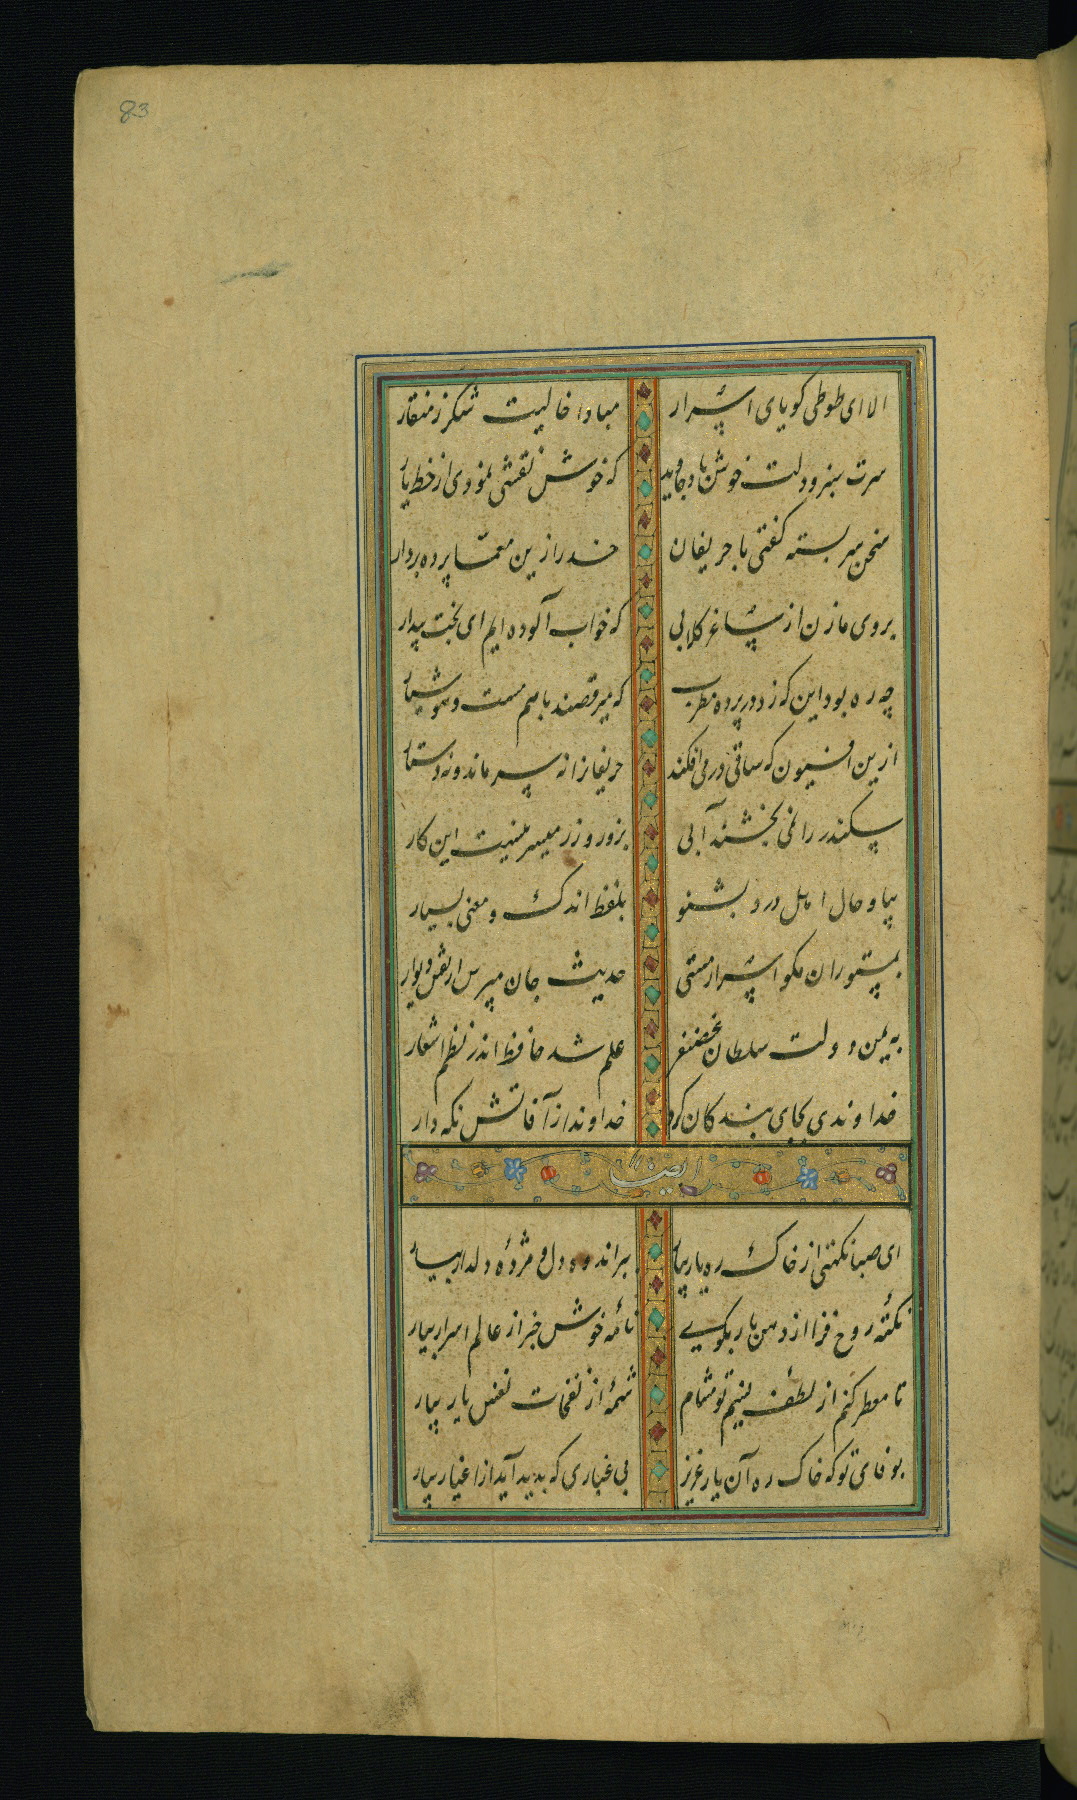 83
الا ای طوطی کویای اسرار مبادا خالیت شکر ز منقار
سرت سبز و دلت خوش باد جاوید که خوش نقشی نمودی از خط یار
سخن سربسته کفتی با حریفان خدا را زین معما پرده بردار
بروی ما زن از ساغر کلابی که خواب آلوده ایم ای بخت بیدار
چه ره بود این که زد در پرده مطرب که میرقصند باهم مست و هوشیار
ازین افسیون که ساقی در می افکند حریفانرا نه سر ماند و نه دستار
سکندر را نمی بخشند آبی بزور و زر میسر نیست این کار
بیا و حال اهل درد بشنو بلفظ اندک و معنی بسیار
بمستوران مکو اسرار مستی حدیث جان مپرس از نقش دیوار
به یمن دولت سلطان غضنفر علم شد حافظ اندر نظم اشعار
خداوندی بجای بندکان کرد خداوندا ز آفاتش نکه دار
ایضا
ای صبا نکهتی از خاک ره یار بیار ببر اندوه دل و مژدهٔ دلدار بیار
نکتهٔ روح فزا از دهن یار بکوی نامهٔ خوش خبر از عالم اسرار بیار
تا معطر کنم از لطف نسیم تو مشام شمهٔ از نفحات نفس یار بیار
بوفای تو که خاک ره آن یار عزیز بی غباری که بدید آید از اغیار بیار